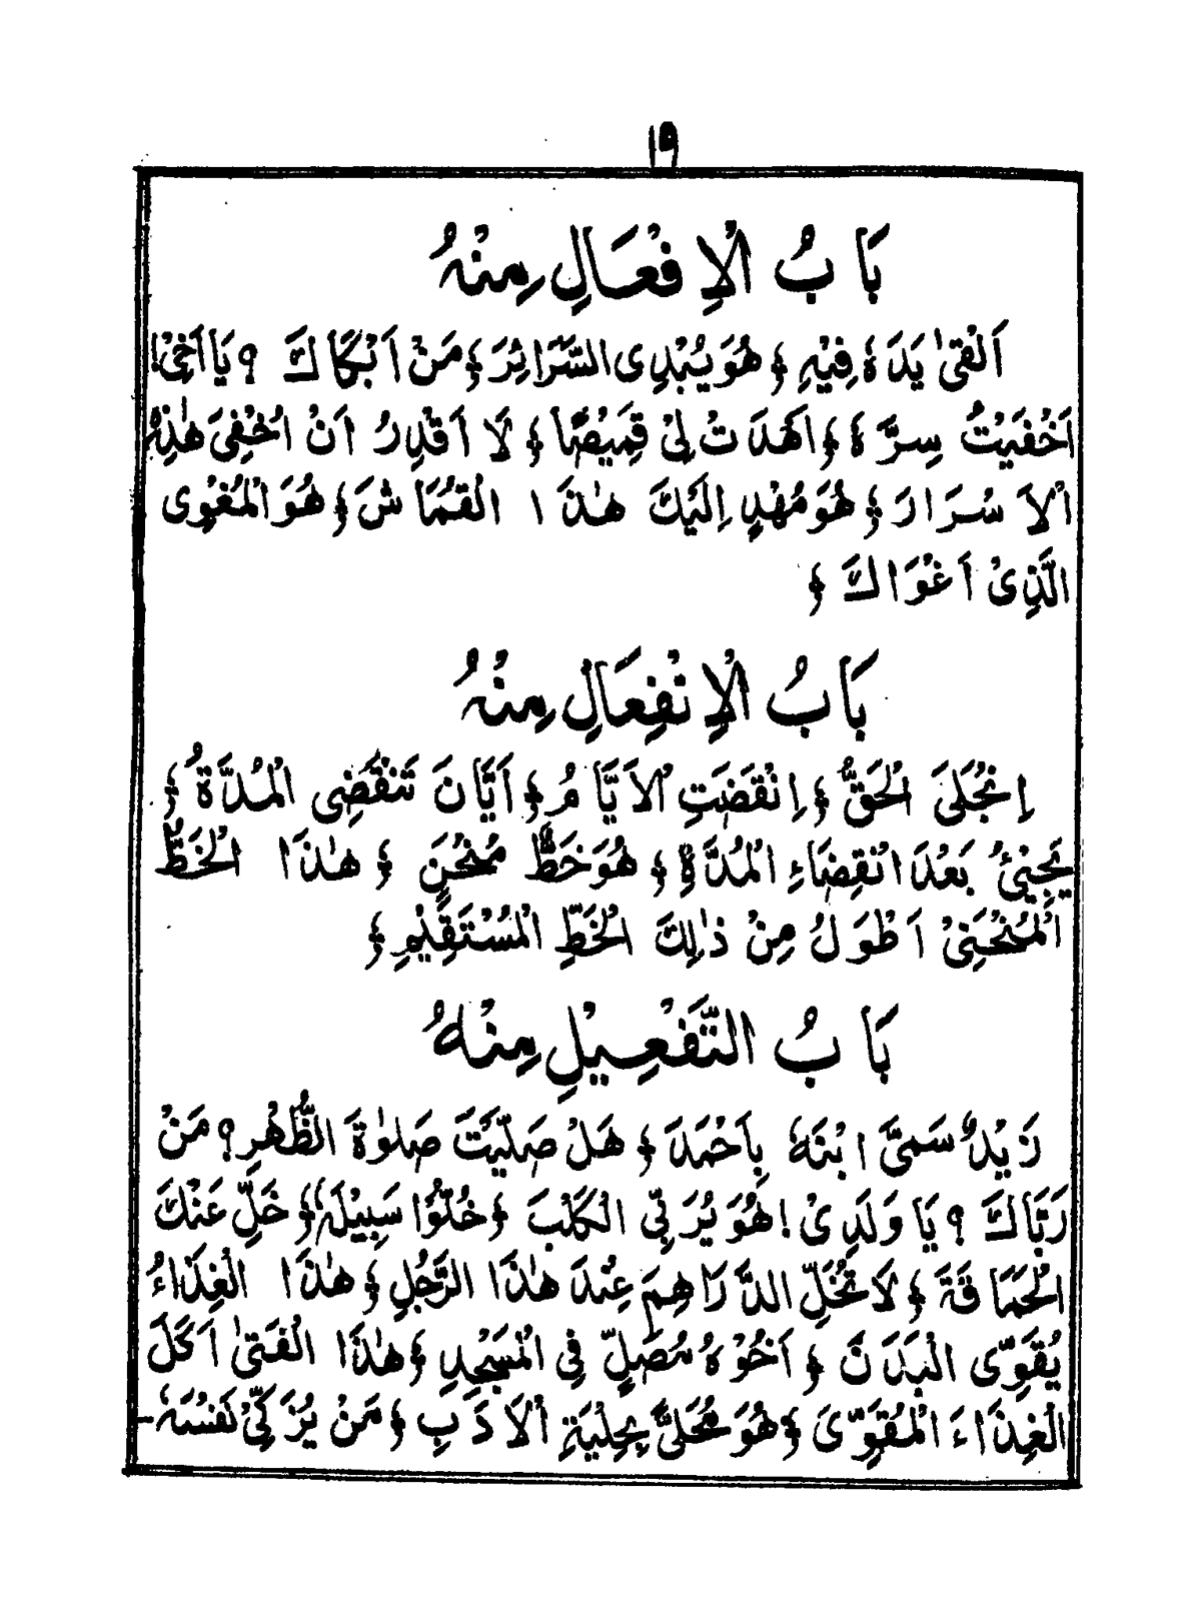 ۱۹
بَابُ الْاِفْعَالِ مِنْهُ
اَلْقیٰ يَدَهٗ فِيْهِ ﴾ هُوَ يُبْدِی السَّرَائِرَ ﴾ مَنْ اَبْكَاكَ ؟ يَا اَخِیْ!
اَخْفَيْتُ سِرَّهٗ ﴾ اَهْدَتْ لِیْ قَمِيْصًا ﴾ لَا اَقْدِرُ اَنْ اُخْفِیَ هٰذِهِ
الْاَسْرَارَ ﴾ هُوَ مُهْدٍ اِلَيْكَ هٰذَا الْقُمَاشَ ﴾ هُوَ الْمُغْوِی
الَّذِیْ اَغْوَاكَ ﴾
بَابُ الْاِنْفِعَالِ مِنْهُ
اِنْجَلَیَ الْحَقُّ ﴾ اِنْقَضَتِ الْاَيَّامُ ﴾ اَيَّانَ تَنْقَضِی الْمُدَّةُ ﴾
يَجِیْئُ بَعْدَ انْقِضَاءِ الْمُدَّةِ ﴾ هُوَ خَطٌّ مُنْحَنٍ ﴾ هٰذَا الْخَطُّ
الْمُنْحَنِیْ اَطْوَلُ مِنْ ذٰلِكَ الْخَطِّ الْمُسْتَقِيْمِ ﴾
بَابُ التَّفْعِيْلِ مِنْهُ
زَيْدٌ سَمیَّ ابْنَهٗ بِاَحْمَدَ ﴾ هَلْ صَلَّيْتَ صَلٰوةَ الظُّهْرِ ؟ مَنْ
رَبَّاكَ ؟ يَا وَلَدِیْ ! هُوَ يُرَبِّی الْكَلْبَ ﴾ خُلُّوْا سَبِيْلَهٗ ﴾ خَلِّ عَنْكَ
الْحَمَاقَةَ ﴾ لَا تُخَلِّ الدَّرَاهِمَ عِنْدَ هٰذَا الرَّجُلِ ﴾ هٰذَا الْغِذَاءُ
يُقَوِّی الْبَدَنَ ﴾ اَخُوْهُ مُصَلٍّ فِی الْمَسْجِدِ ﴾ هٰذَا الْفَتیٰ اَكَلَ
الْغِذَاءَ الْمُقَوِّیَ ﴾ هُوَ مُحَلیًّ بِحِلْيَةِ الْاَدَبِ ﴾ مَنْ يُزَكِّیْ نَفْسَهٗ -